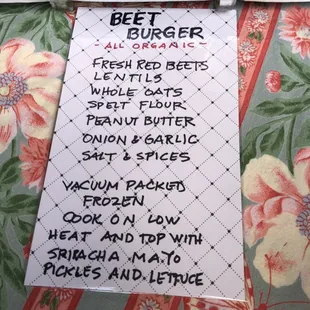 BEET
BURGER
- ALL ORGANIC -
FRESH RED BEETS
LENTILS
WHOLE OATS
SPELT FLOUR
PEANUT BUTTER
ONION & GARLIC
SALT & SPICES
VACUUM PACKED
FROZEN
COOK ON LOW
HEAT AND TOP WITH
SRIRACHA MAYO
PICKLES AND LETTUCE